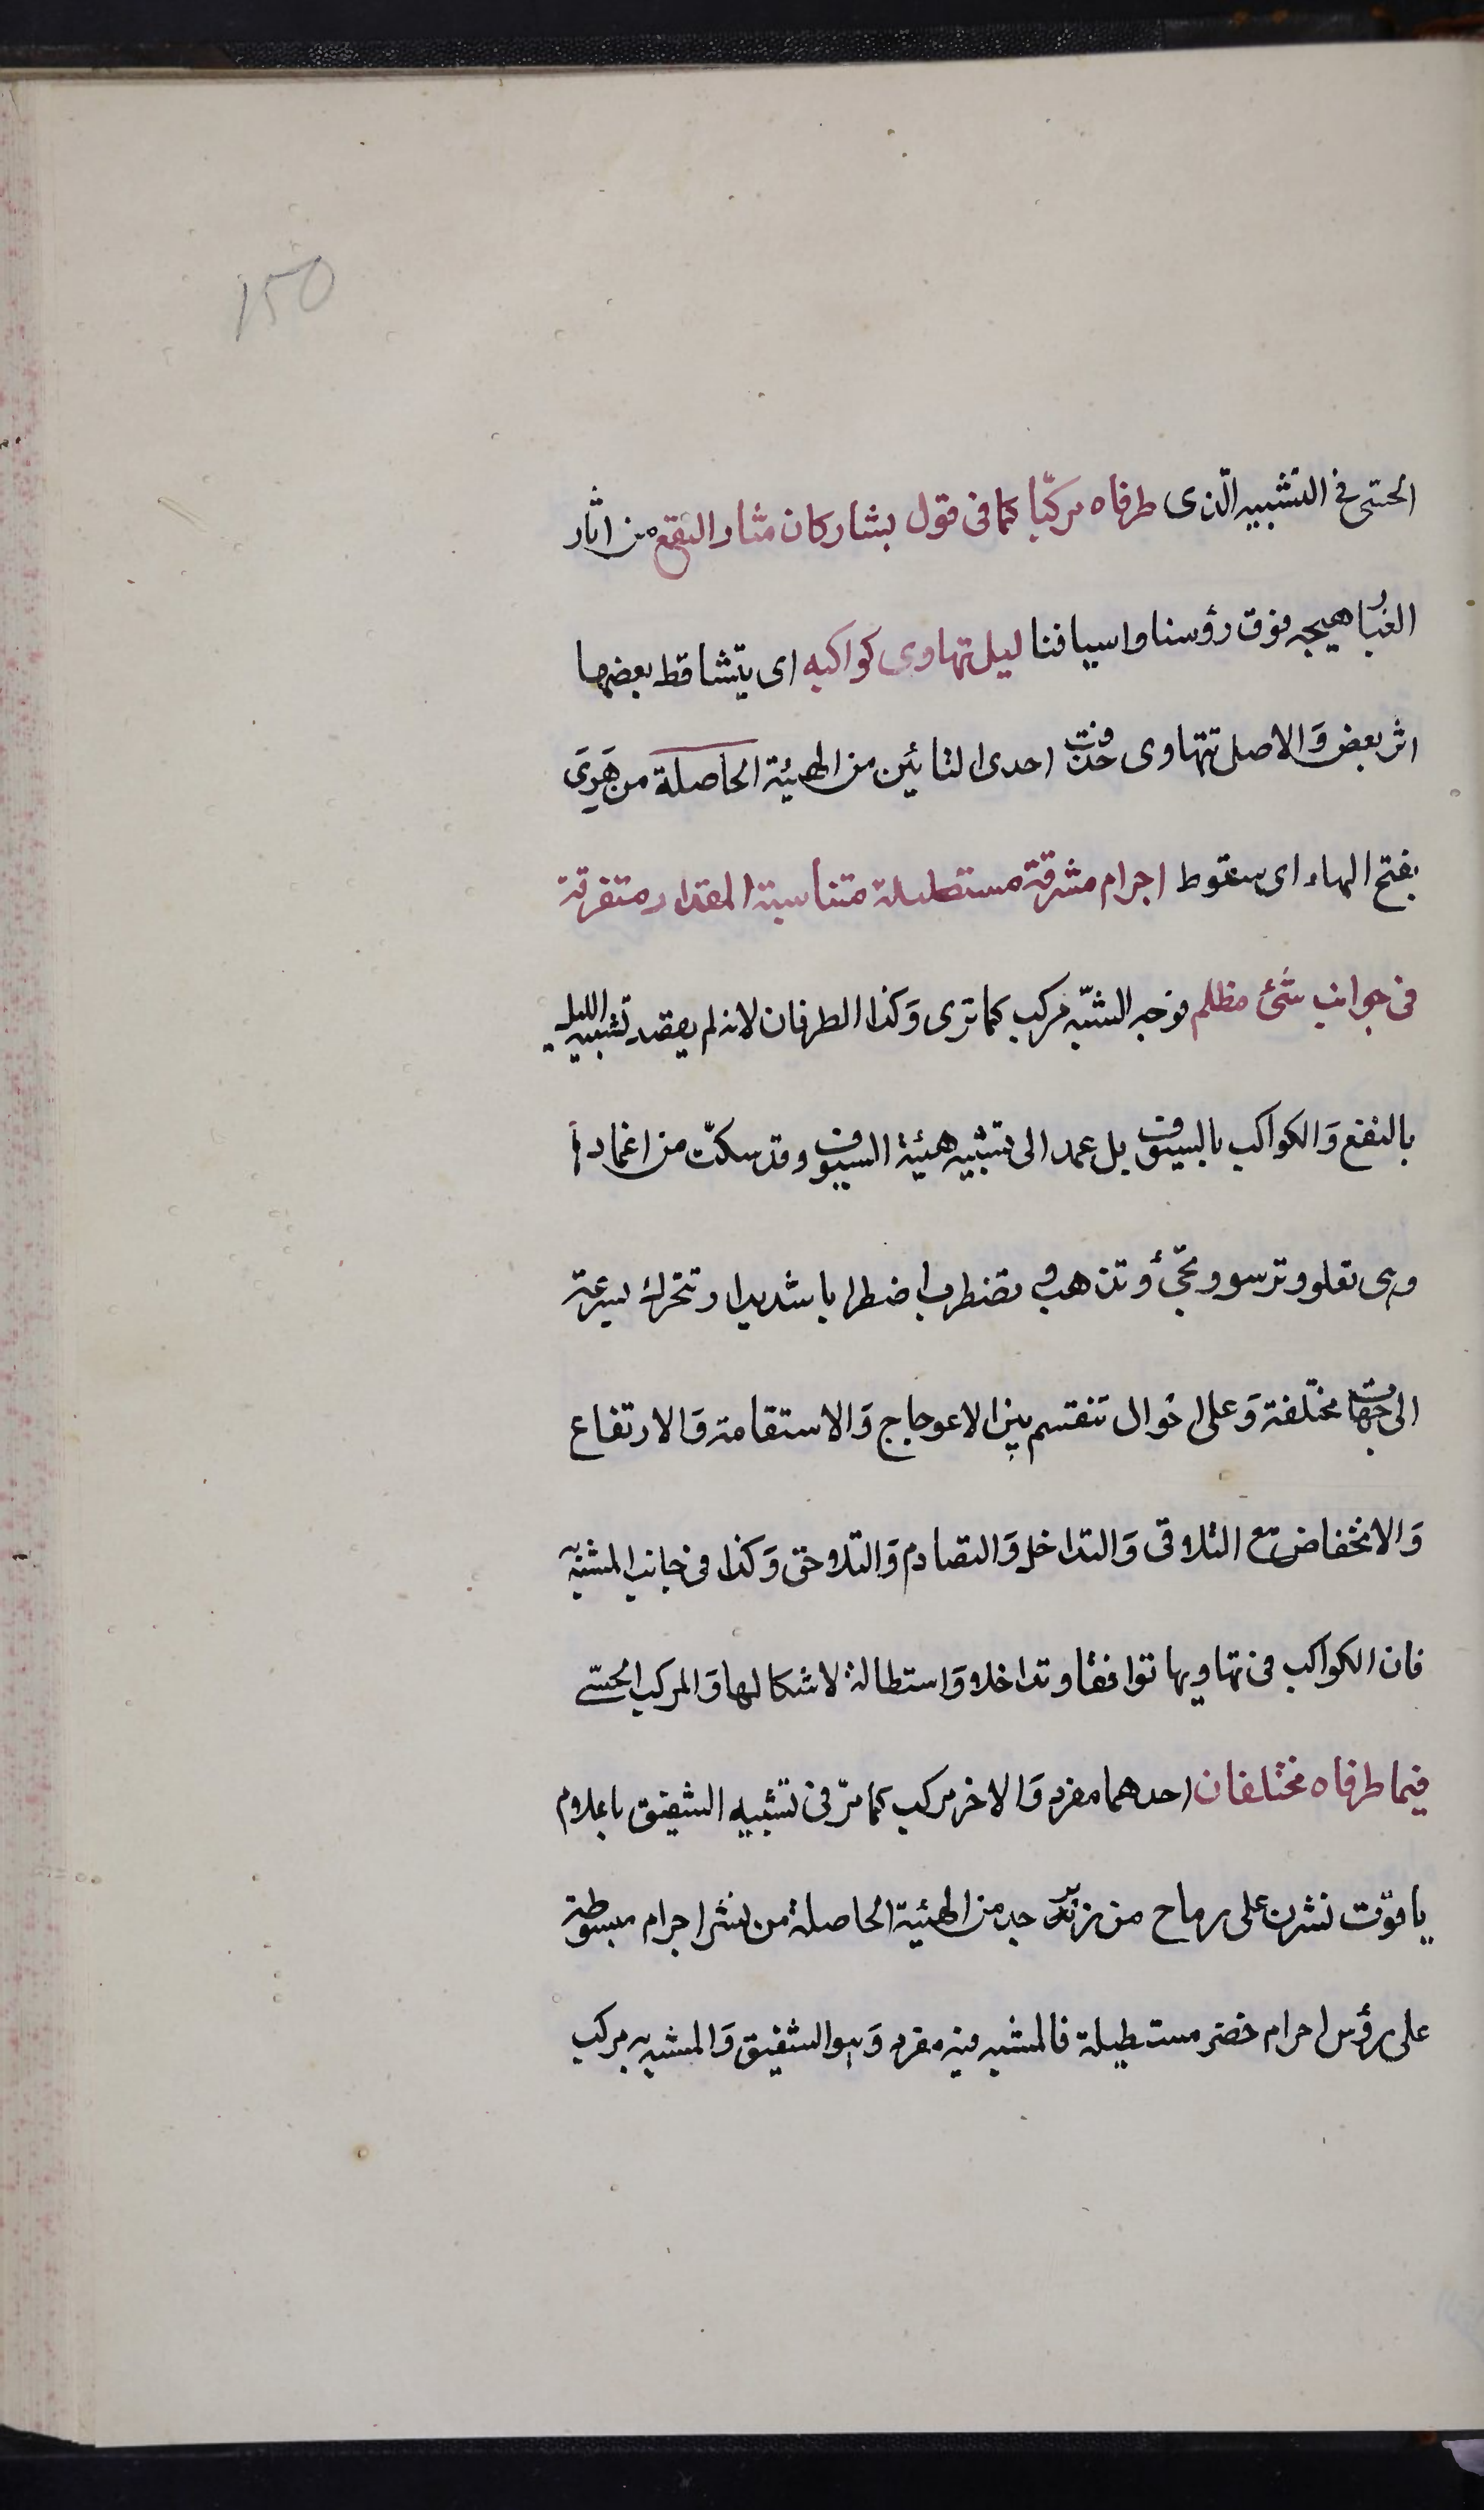 150
الحسّى فى التشبيه الّذى طرفاه مركبّا كما فى قول بشار كان مثار النقع من اثار
الغُبار هيجه فوق رؤسنا واسيافنا ليل تهاوى كواكبه اى يتشاقط بعضها
اثر بعض وَالاصل تتهاوى حذفت احدى التائين من الهيئة الحاصلة من هَوِىَ
بفتح الهاء اى سقوط اجرام مشرقة مستطيلة متناسبة المقدار متفرقة
فى جوانب شئ مظلم فوجه الشبّه مركب كما ترى وَكذا الطرفان لانه لم يقصد تشبيه الليل
بالنقع وَالكواكب بالسيوف بل عمد الى تشبيه هيئة السيوف وقد سكّت من اغمادها
وهى تعلو وترسو وتجئ وتذهب و تضطرب اضطرابا شديدا وتتحرك بسرعة
الى جهات مختلفة وَعلى احوال تنقسم بين الاعوجاج وَالاستقامة وَالارتفاع
وَالانخفاض مع التلاقى وَالتداخل وَالتصادم وَالتلاحق وَكذا فى جانب المشبّه به
فان الكواكب فى تهاويها توافقا وتداخلا وَاستطالة لاشكالها وَالمركب الحسّى
فيما طرفاه مختلفان احدهما مفرد وَالاخر مركب كما مرّ فى تشبيه الشقيق باعلام
ياقوت نشرن على رماح من زبرجد من الهيئة الحاصلة من نشر اجرام مبسوطة
على رؤس اجرام خضر مستطيلة فالمشبه فيه مفرد وَهو الشقيق وَالمشبه به مركب